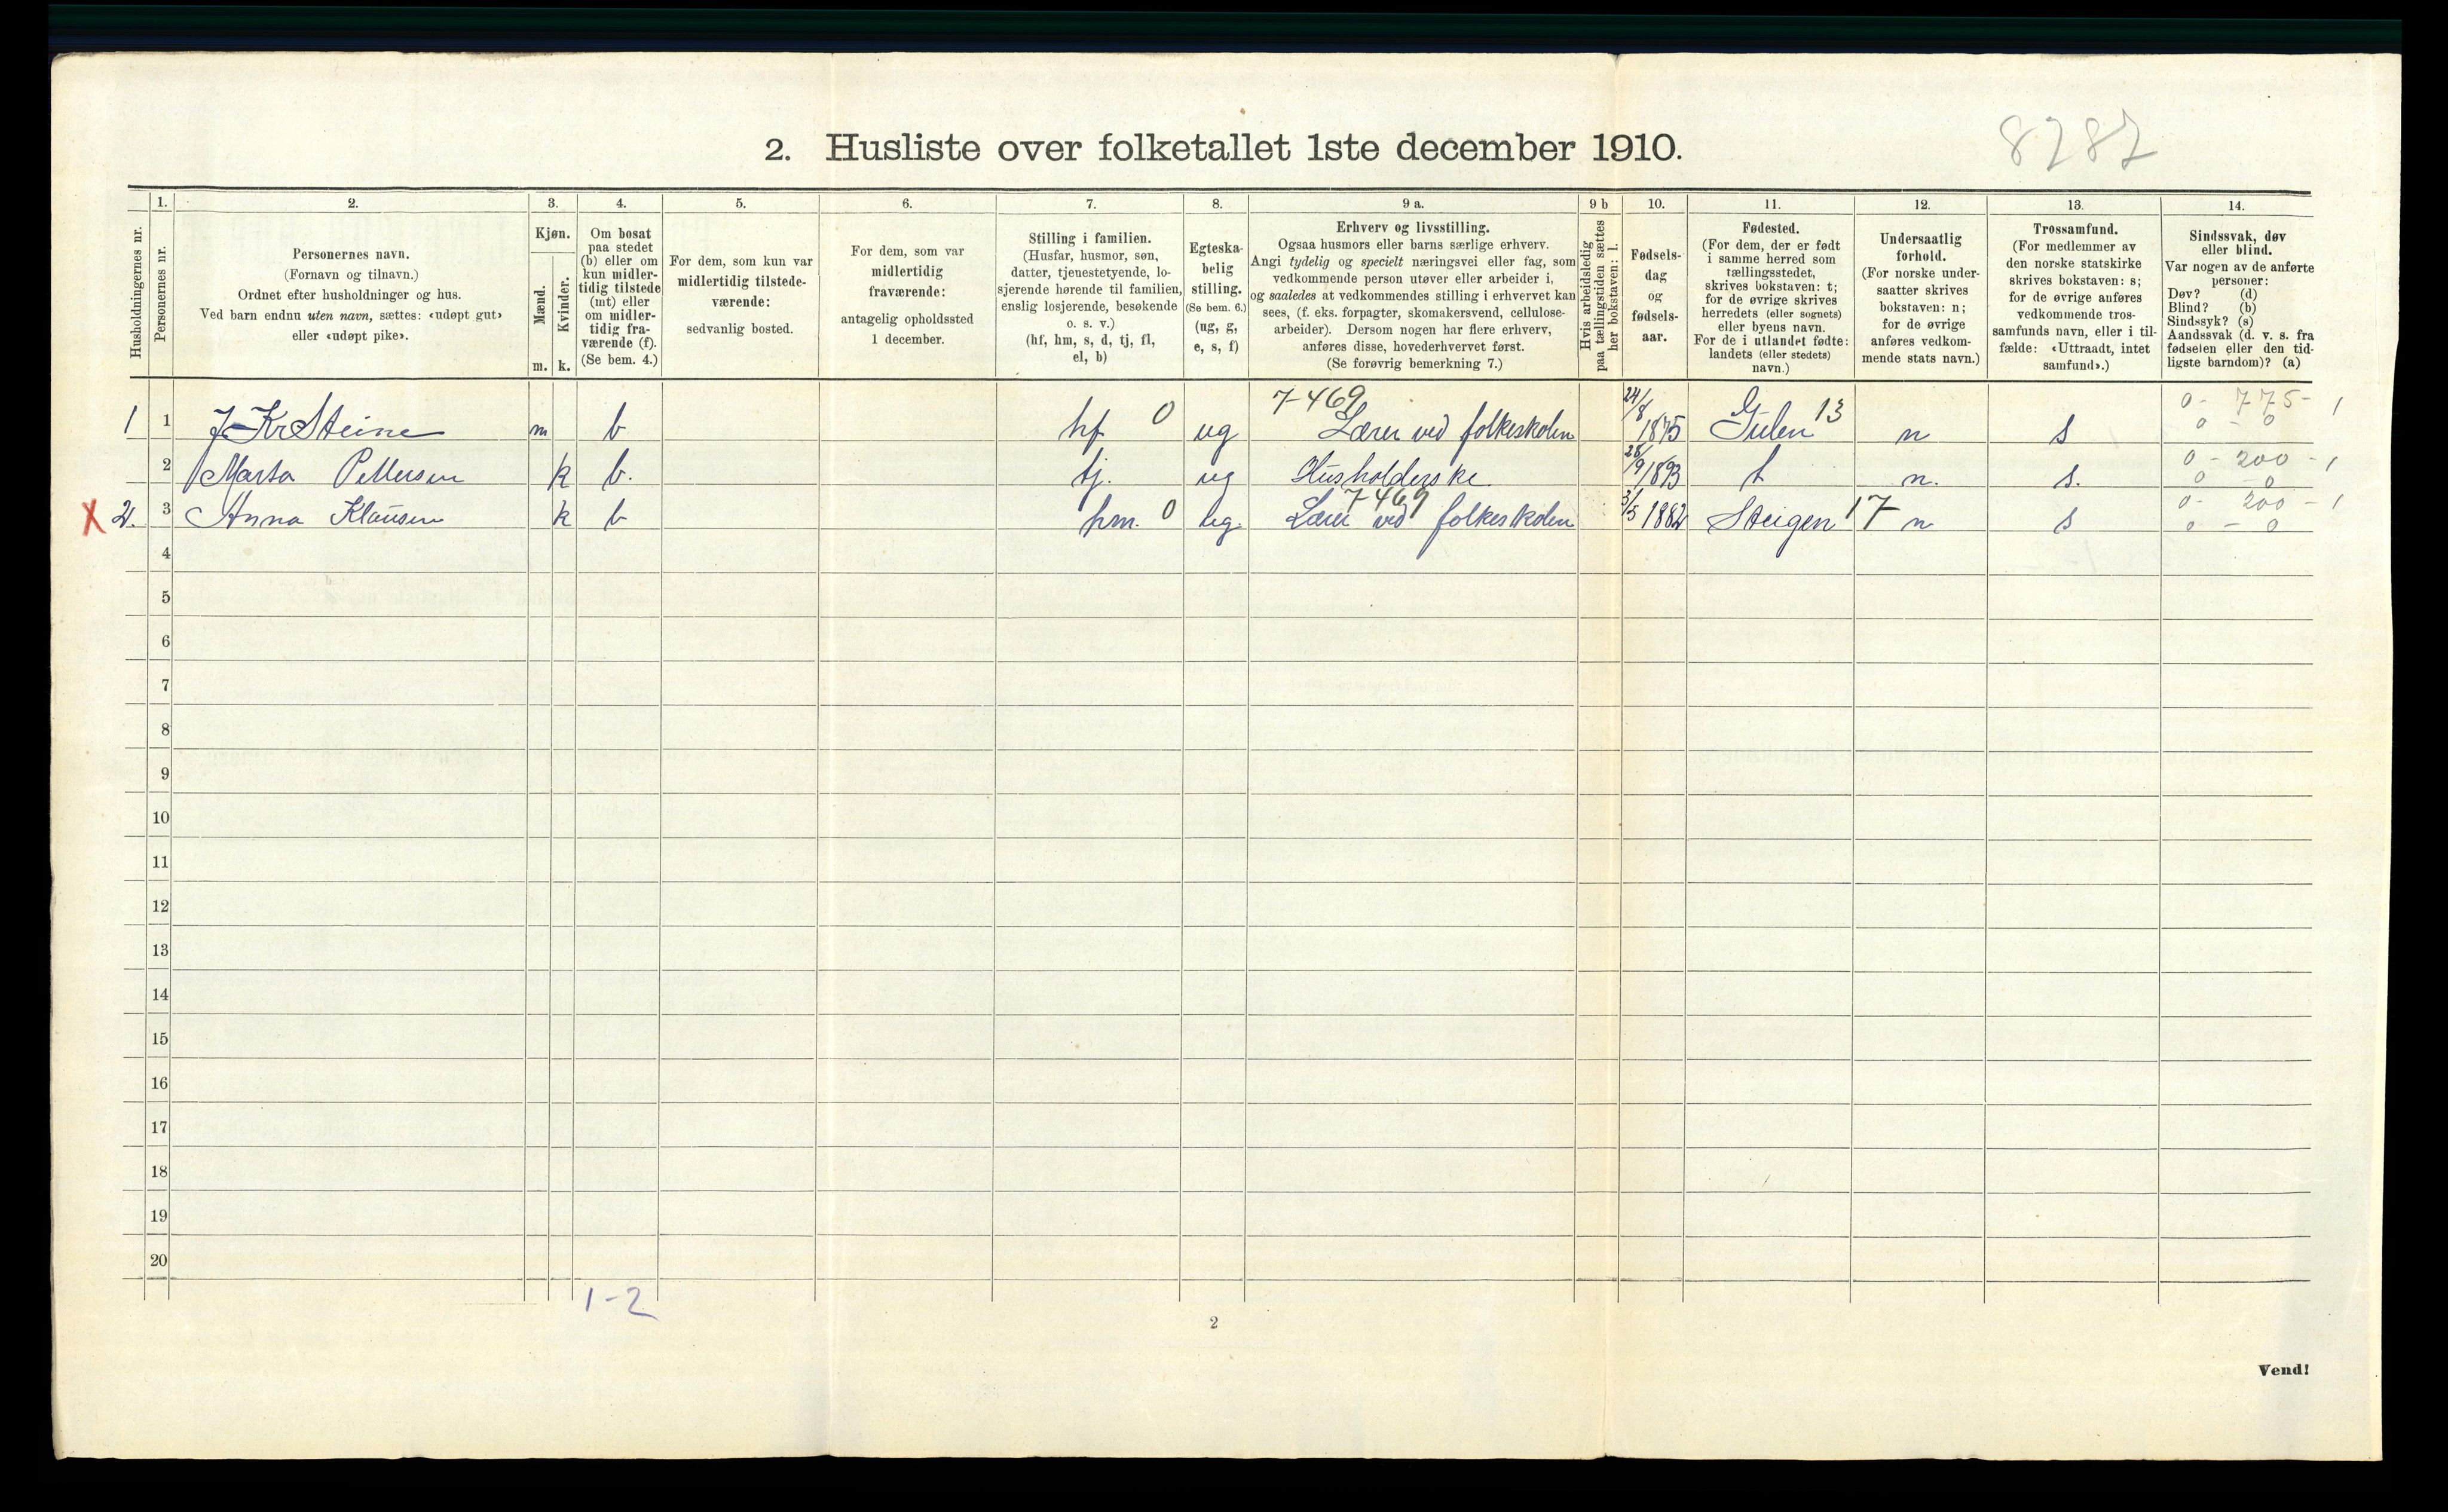 8282
2. Husliste over folketallet 1ste december 1910.
Husholdningernes nr.
1.
Personernes nr.
2.
Personernes navn.
(Fornavn og tilnavn.)
Ordnet efter husholdninger og hus.
Ved barn endnu uten navn, sættes: «udøpt gut»
eller «udøpt pike».
3.
Kjøn.
Mænd.
m.
Kvinder.
k.
4.
Om bosat
paa stedet
(b) eller om
kun midler-
tidig tilstede
(mt) eller
om midler-
tidig fra-
værende (f).
(Se bem. 4.)
5.
For dem, som kun var
midlertidig tilstede-
værende:
sedvanlig bosted.
6.
For dem, som var
midlertidig
fraværende:
antagelig opholdssted
1 december.
7.
Stilling i familien.
(Husfar, husmor, søn,
datter, tjenestetyende, lo-
sjerende hørende til familien,
enslig losjerende, besøkende
o. s. v.)
(hf, hm, s, d, tj, fl,
el, b)
8.
Egteska-
belig
stilling.
(Se bem. 6.)
(ug, g,
e, s, f)
9 a.
Erhverv og livsstilling.
Ogsaa husmors eller barns særlige erhverv.
Angi tydelig og specielt næringsvei eller fag, som
vedkommende person utøver eller arbeider i,
og saaledes at vedkommendes stilling i erhvervet kan
sees, (f. eks. forpagter, skomakersvend, cellulose-
arbeider). Dersom nogen har flere erhverv,
anføres disse, hovederhvervet først.
(Se forøvrig bemerkning 7.)
9 b
Hvis arbeidsledig
paa tællingstiden sættes
her bokstaven: l.
10.
Fødsels-
dag
og
fødsels-
aar.
11.
Fødested.
(For dem, der er født
i samme herred som
tællingsstedet,
skrives bokstaven: t;
for de øvrige skrives
herredets (eller sognets)
eller byens navn.
For de i utlandet fødte:
landets (eller stedets)
navn.)
12.
Undersaatlig
forhold.
(For norske under-
saatter skrives
bokstaven: n;
for de øvrige
anføres vedkom-
mende stats navn.)
13.
Trossamfund.
(For medlemmer av
den norske statskirke
skrives bokstaven: s;
for de øvrige anføres
vedkommende tros-
samfunds navn, eller i til-
fælde: «Uttraadt, intet
samfund».)
14.
Sindssvak, døv
eller blind.
Var nogen av de anførte
personer:
Døv? (d)
Blind? (b)
Sindssyk? (s)
Aandssvak (d. v. s. fra
fødselen eller den tid-
ligste barndom)? (a)
7-469 0 - 775 - 1
1 1 J. Kr Steine m b hf 0 ug Lærer ved folkeskolen 24/8 1875 Gulen 13 n s 0 - 0
0 - 200 - 1
2 Marta Pettersen k b. tj. ug Husholderske 28/9 1893 t n. s. 0 - 0
7-469 0 - 200 - 1
X 2. 3 Anna Klausen k b hm. 0 ug. Lærer ved folkeskolen 3/5 1882 Steigen 17 n s 0 - 0
4
5
6
7
8
9
10
11
12
13
14
15
16
17
18
19
20
1-2
2
Vend!